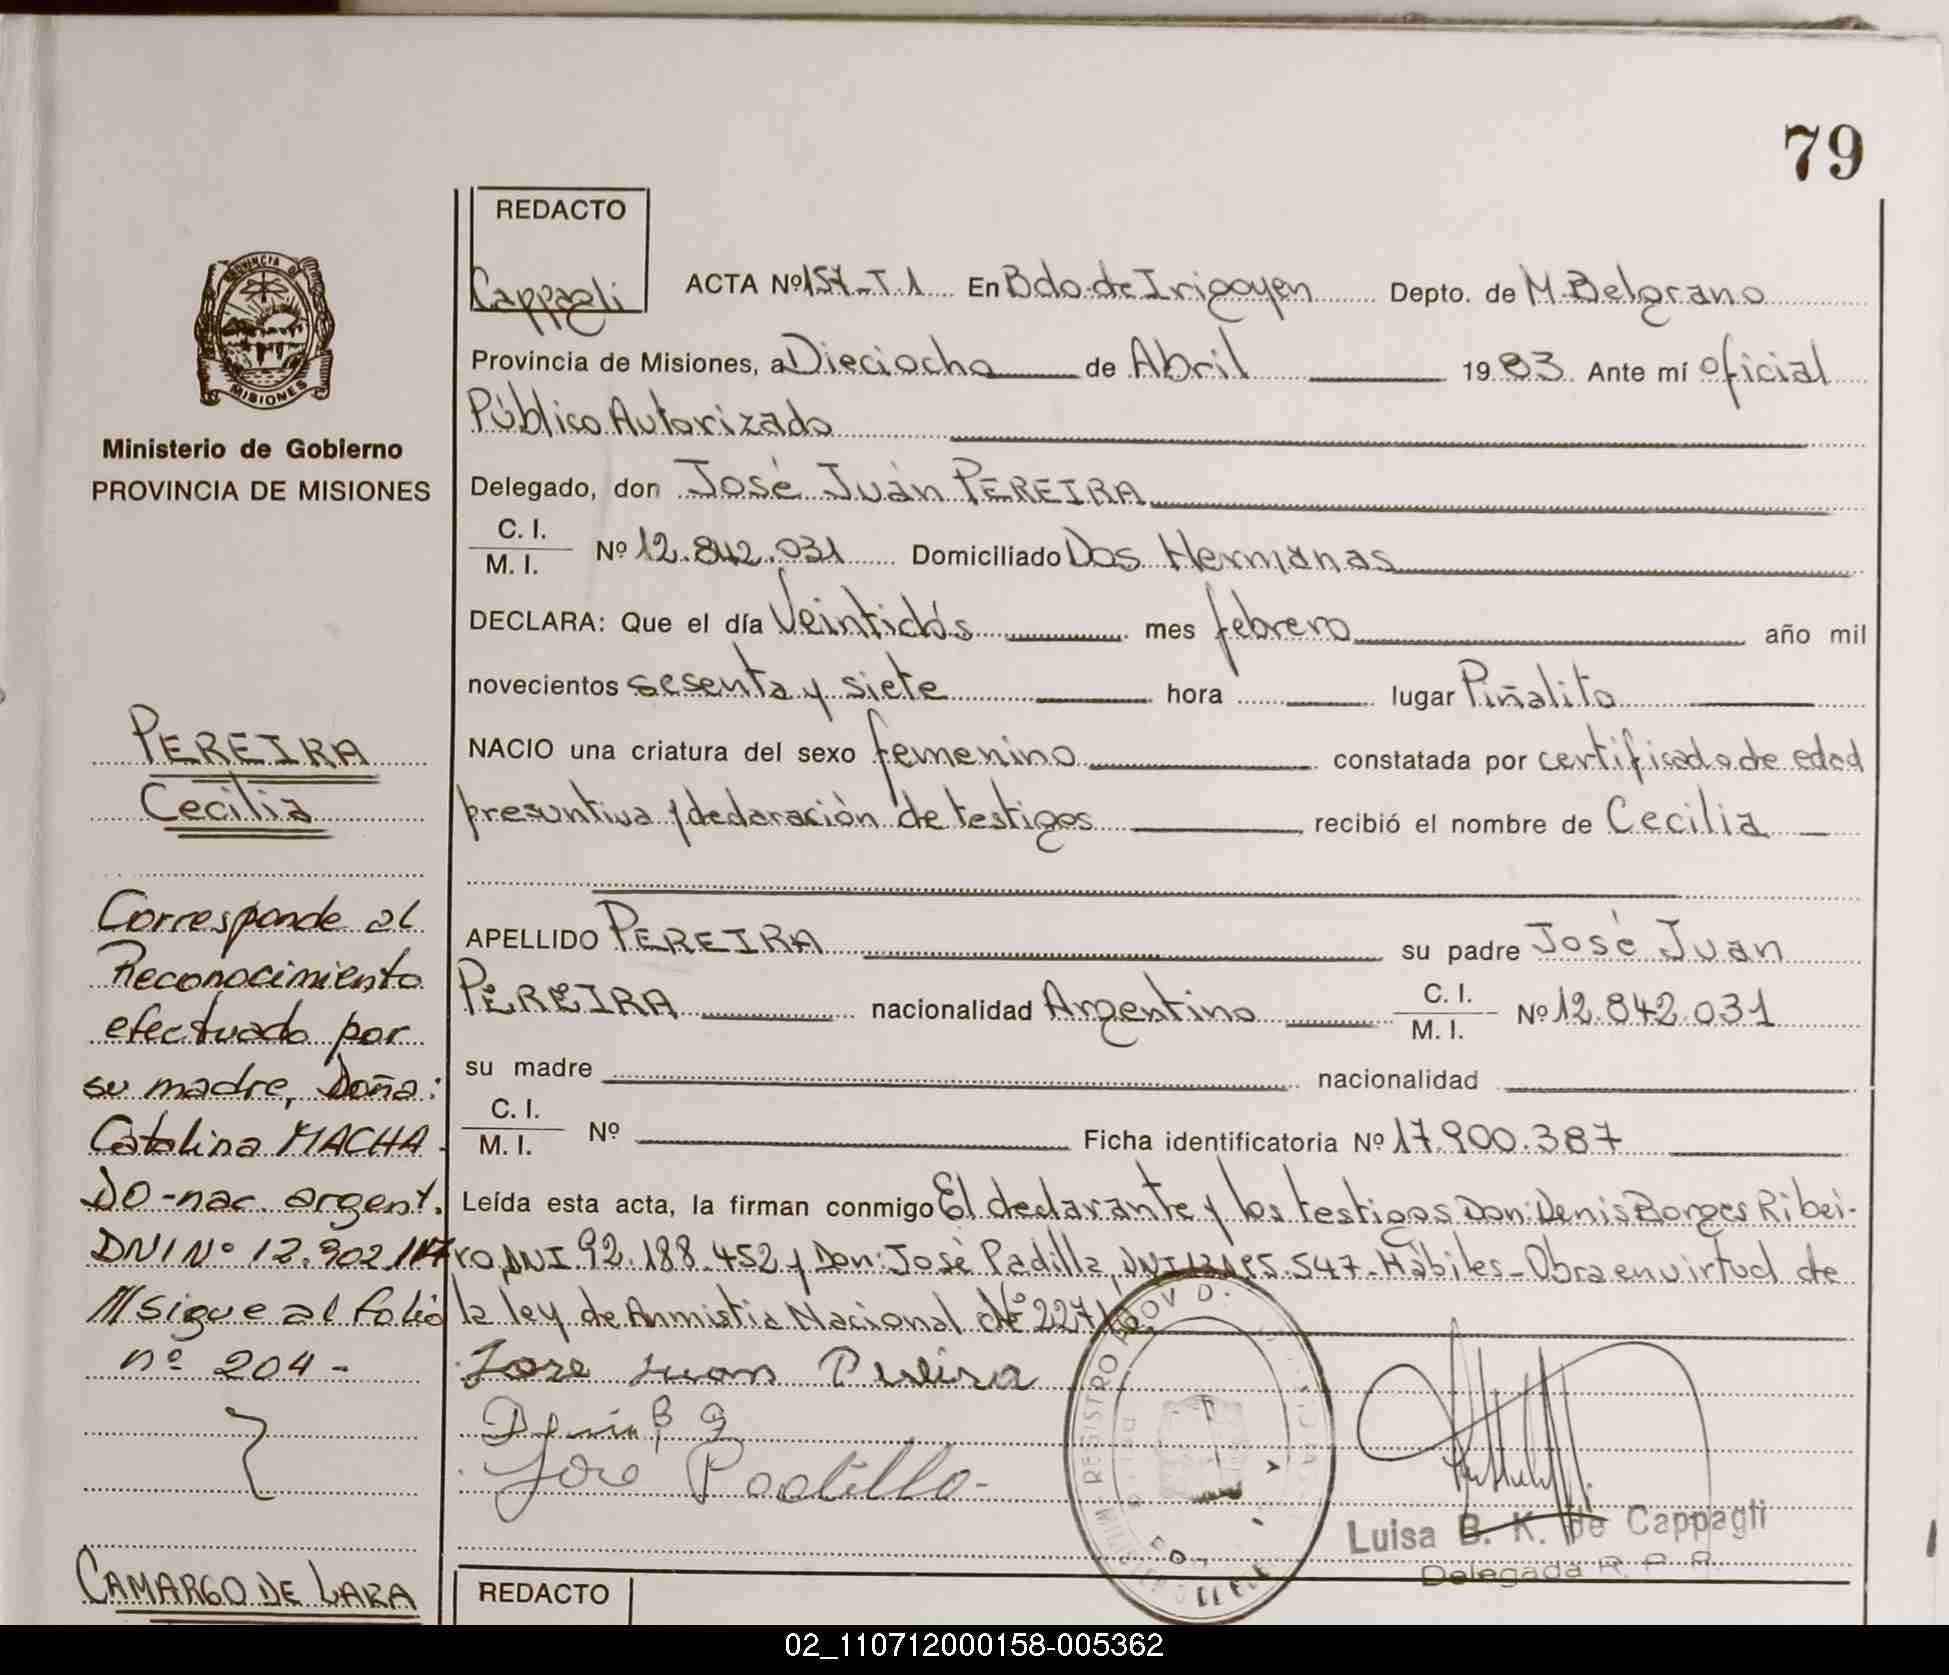 79
REDACTO
Cappagli
ACTA Nº 157-T.1 En Bdo. de Irigoyen Depto. de M. Belgrano
Provincia de Misiones, a Dieciocho de Abril 1983. Ante mí oficial
Público Autorizado
Delegado, don José Juan PEREIRA
C. I.
M. I.
Nº 12.842.031 Domiciliado Dos Hermanas
DECLARA: Que el día Veintidós mes febrero año mil
novecientos sesenta y siete hora lugar Piñalito
NACIO una criatura del sexo femenino constatada por certificado de edad
presuntiva y declaración de testigos recibió el nombre de Cecilia
APELLIDO PEREIRA su padre José Juan
PEREIRA nacionalidad Argentino C. I. M. I. Nº 12.842.031
su madre nacionalidad
C. I.
M. I.
Nº Ficha identificatoria Nº 17.900.387
Leída esta acta, la firman conmigo El declarante y los testigos Don: Denis Borges Ribei-
ro, DNI 92.188.452 y Don: José Padilla, DNI 547-Hábiles-Obra en virtud de
la ley de Anmistia Nacional
Jose Juan Pereira
Jose Padilla-
Luisa B. K. de Cappagli
Delegada R. P. P.
REGISTRO PROV D.
PROVINCIA D
MISIONES
Ministerio de Gobierno
PROVINCIA DE MISIONES
PEREIRA
Cecilia
Corresponde al
Reconocimiento
efectuado por
su madre, Doña:
Catalina MACHA-
DO-nac. argent.
DNI Nº 12.902.117
sigue al folio
nº 204-
CAMARGO DE LARA
REDACTO
02_110712000158-005362